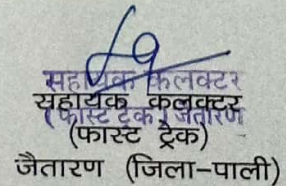 सहायक कलक्टर
(फास्ट ट्रैक) जैतारण
सहायक कलक्टर
(फास्ट ट्रैक)
जैतारण (जिला-पाली)